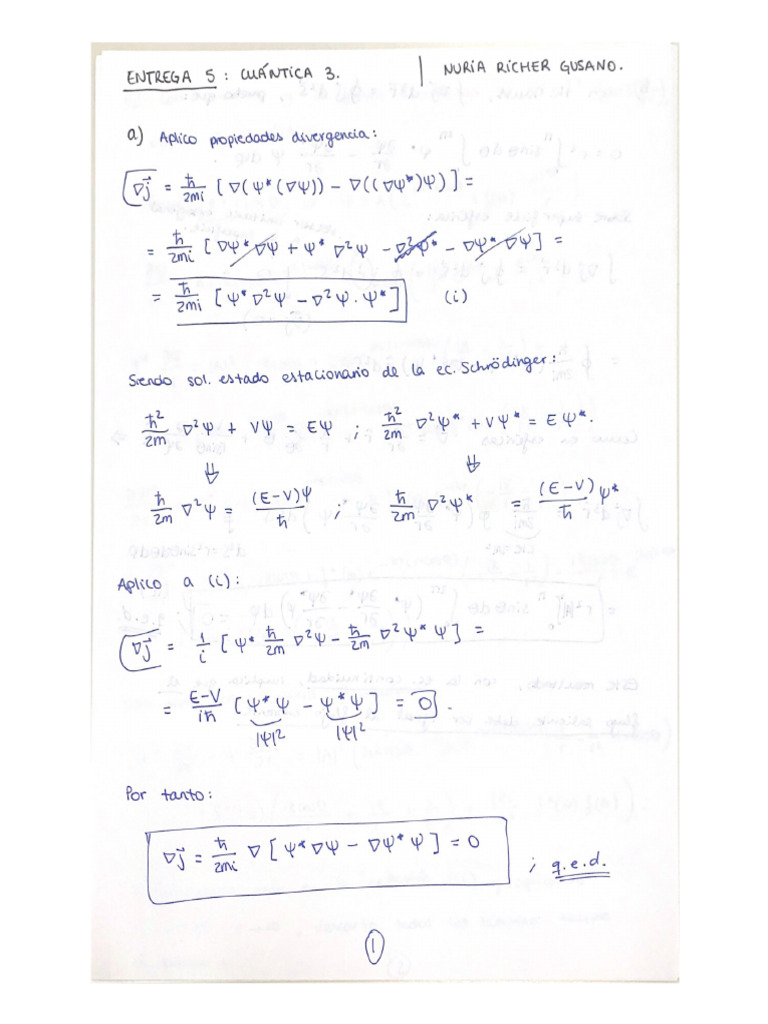 ENTREGA 5: CUÁNTICA 3. | NURIA RICHER GUSANO.
a) Aplico propiedades divergencia:
∇j⃗ = ħ/2mi [∇(ψ*(∇ψ)) − ∇((∇ψ*)ψ)] =
= ħ/2mi [∇ψ*∇ψ + ψ*∇²ψ − ∇²ψ* − ∇ψ*∇ψ] =
= ħ/2mi [ψ*∇²ψ − ∇²ψ.ψ*] (i)
Siendo sol. estado estacionario de la ec. Schrödinger:
ħ²/2m ∇²ψ + Vψ = Eψ ; ħ²/2m ∇²ψ* + Vψ* = Eψ*.
⇓ ⇓
ħ/2m ∇²ψ = (E−V)ψ/ħ ; ħ/2m ∇²ψ* = (E−V)/ħ ψ*
Aplico a (i):
∇j⃗ = 1/i [ψ* ħ/2m ∇²ψ − ħ/2m ∇²ψ*ψ] =
= E−V/iħ [ψ*ψ − ψ*ψ] = 0.
|ψ|² |ψ|²
Por tanto:
∇j⃗ = ħ/2mi ∇[ψ*∇ψ − ∇ψ*ψ] = 0 ; q.e.d.
1